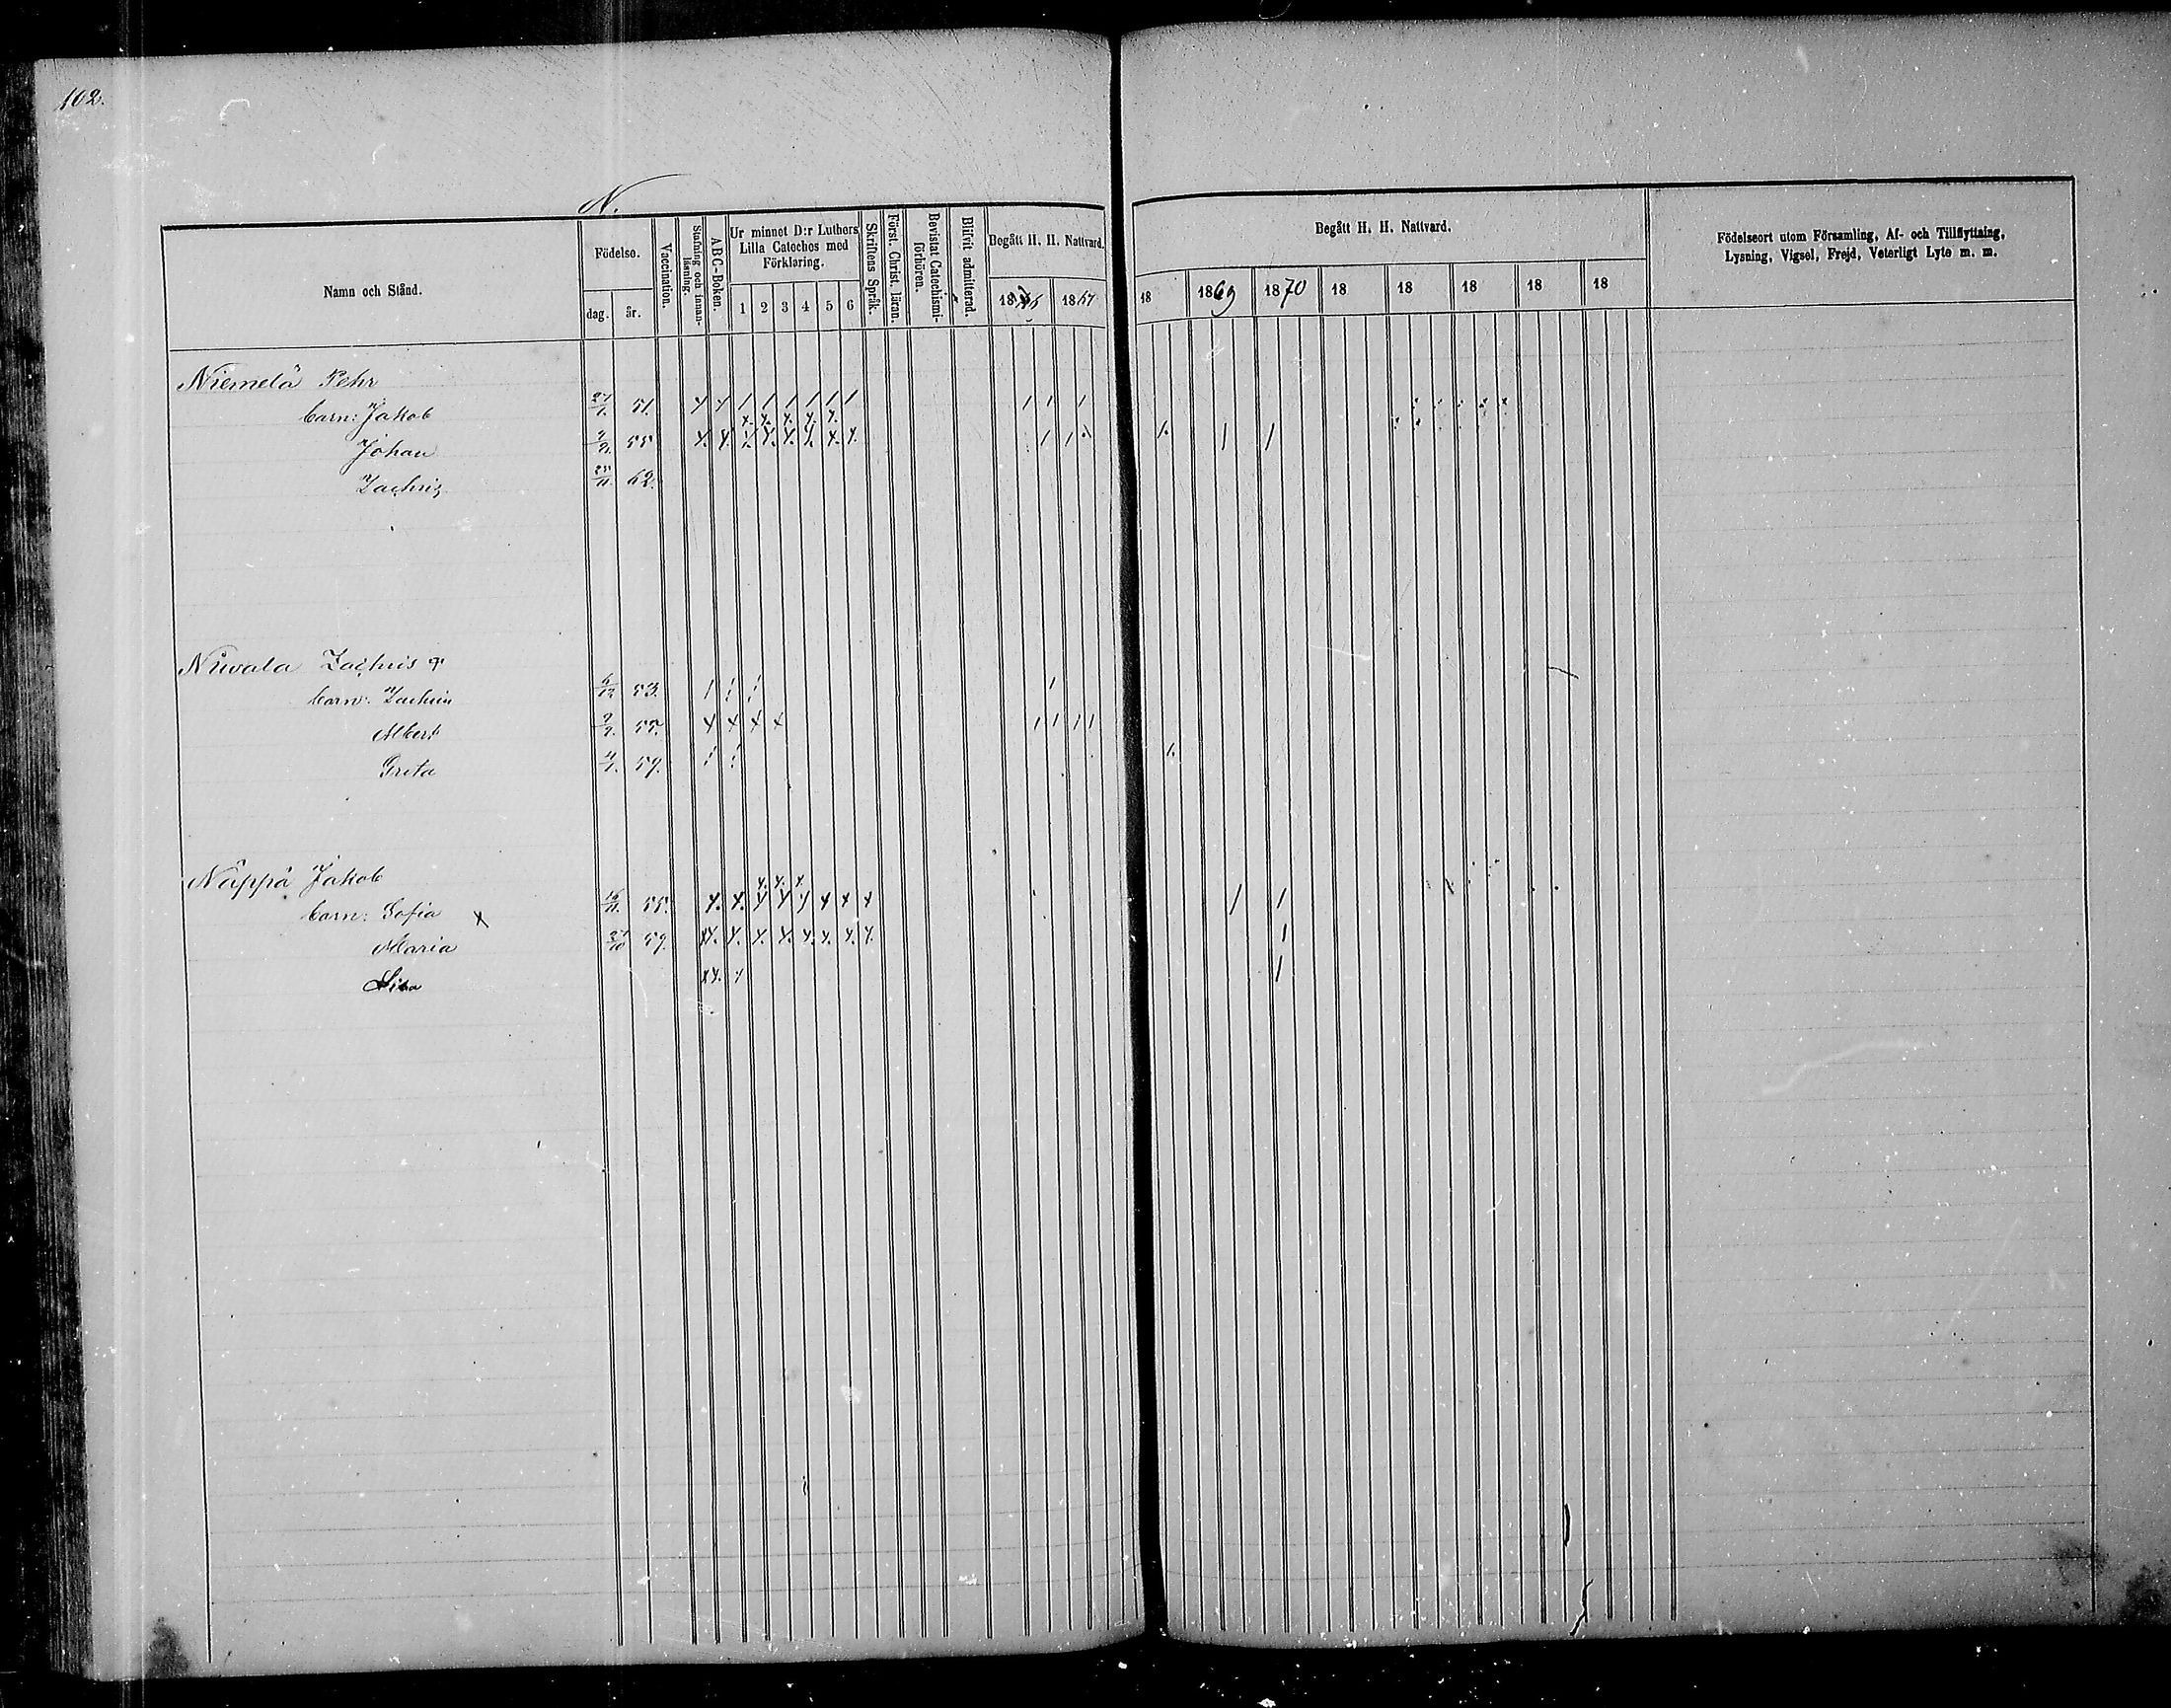 102.
N.
Namn och Stånd.
Födelse.
dag. år.
Vaccination.
Stafning och innanläsning.
ABC-Boken.
Ur minnet D:r Luthers Lilla Cateches med Förklaring.
1 2 3 4 5 6
Skriftens Språk.
Först. Christ. läran.
Bevistat Catechismi-förhören.
Blifvit admitterad.
Begått H. H. Nattvard.
1866 1867
Begått H. H. Nattvard.
18 1869 1870 18 18 18 18 18
Födelseort utom Församling, Af- och Tillflyttning, Lysning, Vigsel, Frejd, Veterligt Lyte m. m.
Niemelä Pehr
barn: Jakob 27/1. 51.
Johan 55
Zachris 25/11. 62.
Niwala Zachris
barn: Zachris 6/12 53.
Albert 55.
Greta 59.
Näppä Jakob
barn: Sofia x 16/11. 55.
Maria 27/10 59.
Lisa